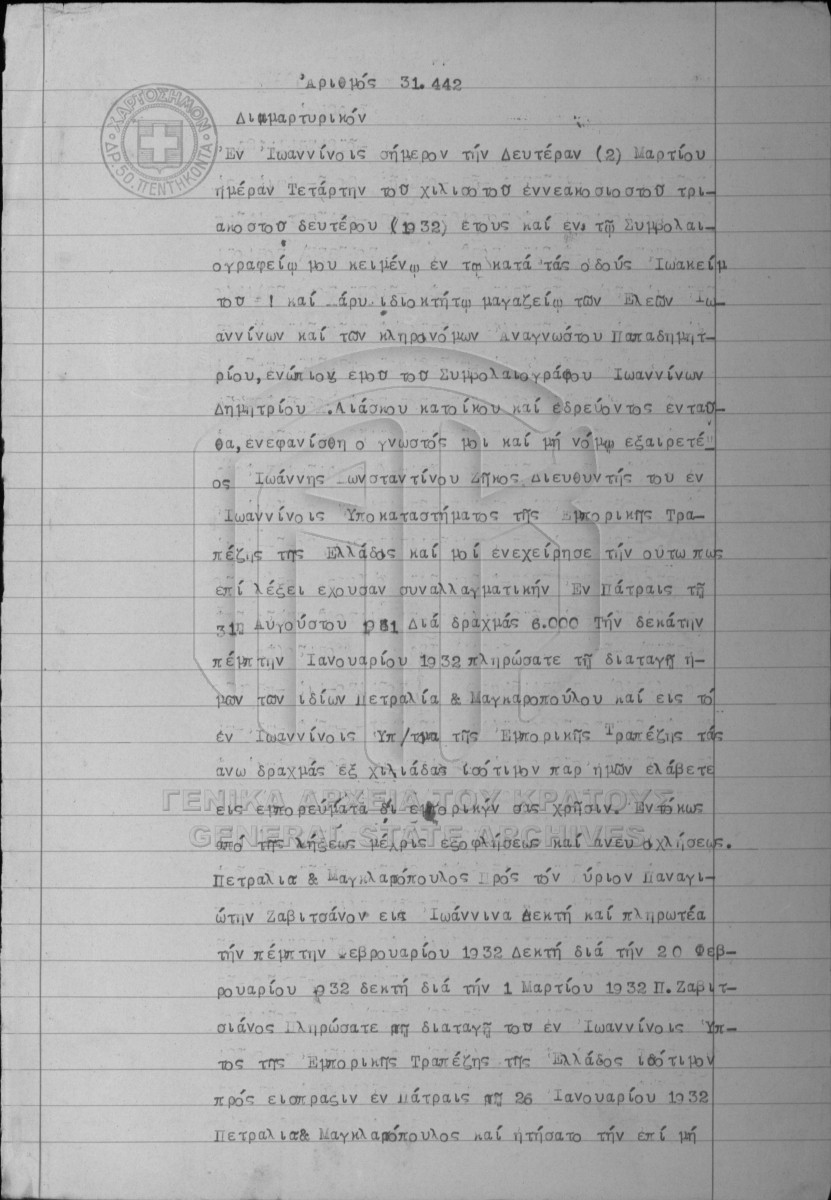 Ἀριθμός 31.442
ΧΑΡΤΟΣΗΜΟΝ
ΔΡ. 50. ΠΕΝΤΗΚΟΝΤΑ
Διαμαρτυρικόν
Ἐν Ἰωαννίνοις σήμερον τήν Δευτέραν (2) Μαρτίου
ἡμέραν Τετάρτην τοῦ χιλιοστοῦ ἐννεακοσιοστοῦ τρι-
ακοστοῦ δευτέρου (1932) ἔτους καί ἐν τῷ Συμβολαι-
ογραφείῳ μου κειμένῳ ἐν τῷ κατά τάς ὁδούς Ἰωακείμ
τοῦ καί ἰδιοκτήτῳ μαγαζείῳ τῶν Ἐλεῶν Ἰω-
αννίνων καί τῶν κληρονόμων Ἀναγνώστου Παπαδημητ-
ρίου, ἐνώπιον ἐμοῦ τοῦ Συμβολαιογράφου Ἰωαννίνων
Δημητρίου Λιάσκου κατοίκου καί ἑδρεύοντος ἐνταῦ-
θα, ἐνεφανίσθη ὁ γνωστός μοι καί μή νόμῳ ἐξαιρετέ-
ος Ἰωάννης Κωνσταντίνου Ζῆκος Διευθυντής του ἐν
Ἰωαννίνοις Ὑποκαταστήματος τῆς Ἐμπορικῆς Τρα-
πέζης τῆς Ἑλλάδος καί μοί ἐνεχείρησε τήν οὕτω πως
ἐπί λέξει ἔχουσαν συναλλαγματικήν Ἐν Πάτραις τῇ
31ῃ Αὐγούστου 1931 Διά δραχμάς 6.000 Τήν δεκάτην
πέμπτην Ἰανουαρίου 1932 πληρώσατε τῇ διαταγῇ ἡ-
μῶν τῶν ἰδίων Πετραλία & Μαγκαροπούλου καί εἰς τό
ἐν Ἰωαννίνοις Ὑπ/τμα τῆς Ἐμπορικῆς Τραπέζης τάς
ἄνω δραχμάς ἕξ χιλιάδας ἰσότιμον παρ ἡμῶν ἐλάβετε
εἰς ἐμπορεύματα δι ἐμπορικήν σας χρῆσιν. Ἐντόκως
ἀπό τῆς λήξεως μέχρις ἐξοφλήσεως καί ἄνευ ὀχλήσεως.
Πετραλια & Μαγκλαρόπουλος Πρός τόν Κύριον Παναγι-
ώτην Ζαβιτσάνον εἰς Ἰωάννινα Δεκτή καί πληρωτέα
τήν πέμπτην Φεβρουαρίου 1932 Δεκτή διά τήν 20 Φεβ-
ρουαρίου 1932 δεκτή διά τήν 1 Μαρτίου 1932 Π. Ζαβιτ-
σιάνος Πληρώσατε τῇ διαταγῇ τοῦ ἐν Ἰωαννίνοις Ὑπ-
τος τῆς Ἐμπορικῆς Τραπέζης τῆς Ἑλλάδος ἰσότιμον
πρός εἴσπραξιν ἐν Πάτραις τῇ 26 Ἰανουαρίου 1932
Πετραλια & Μαγκλαρόπουλος καί ᾐτήσατο τήν ἐπί μή
ΓΕΝΙΚΑ ΑΡΧΕΙΑ ΤΟΥ ΚΡΑΤΟΥΣ
GENERAL STATE ARCHIVES